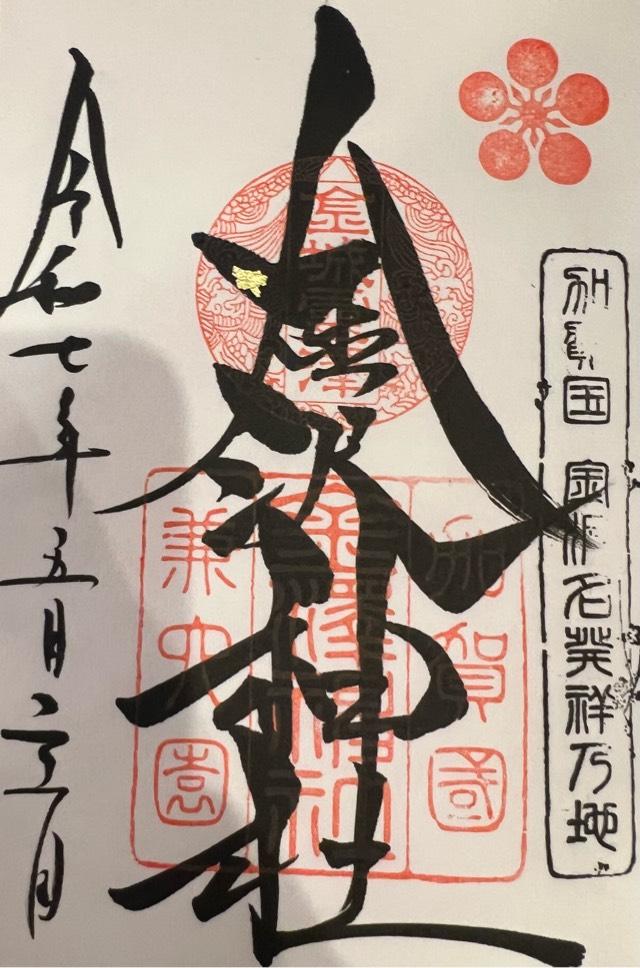 加賀国 金沢名発祥乃地
金城霊澤
金澤神社
加賀國
金澤神社
兼六園
令和七年五月 日